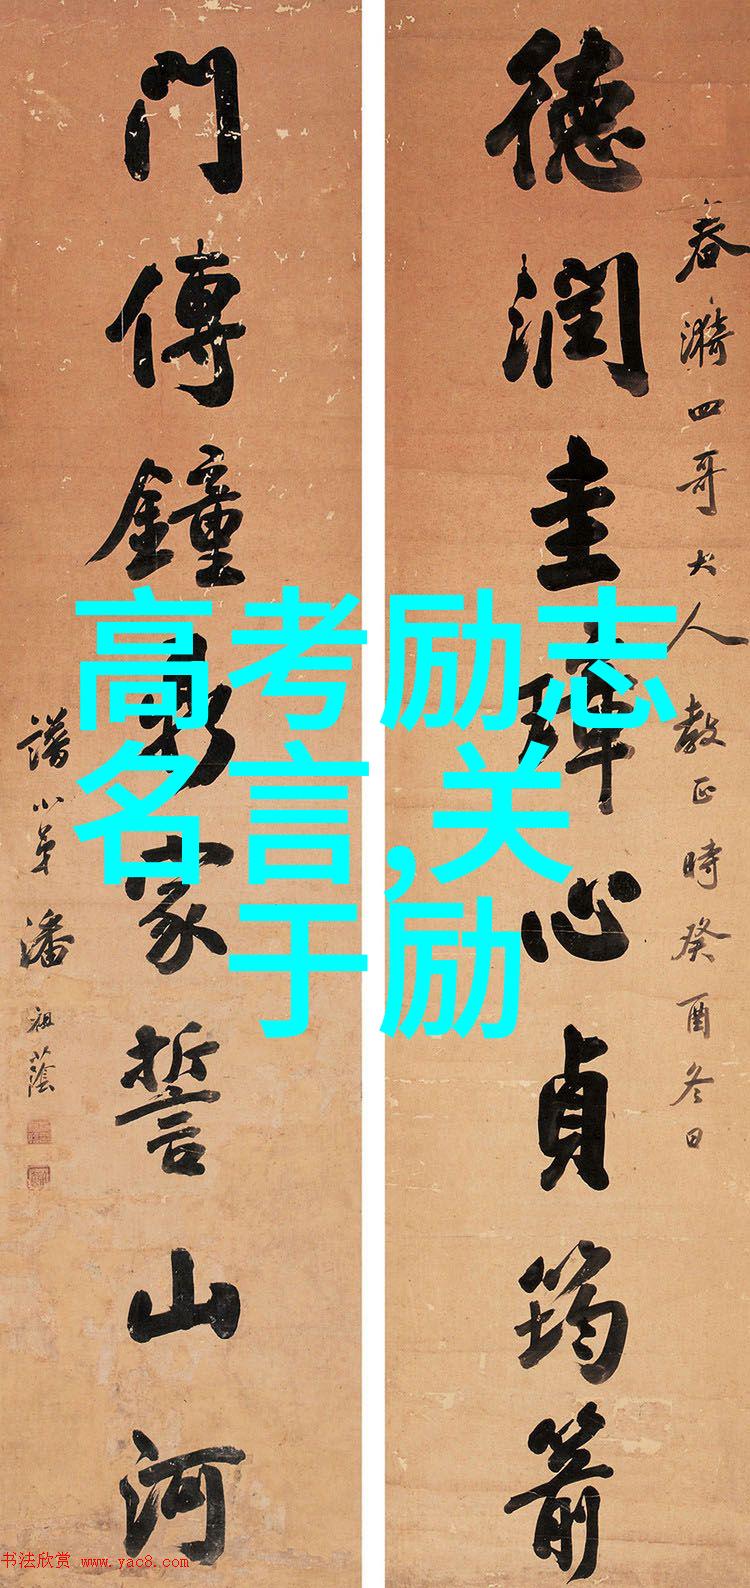 高考励志
名言,关
于励
春漪四哥大人教正時癸酉冬日
德潤圭璋心貞筠箭
門傳鐘鼎家誓山河
譜小弟潘祖蔭
书法欣赏 www.yac8.com